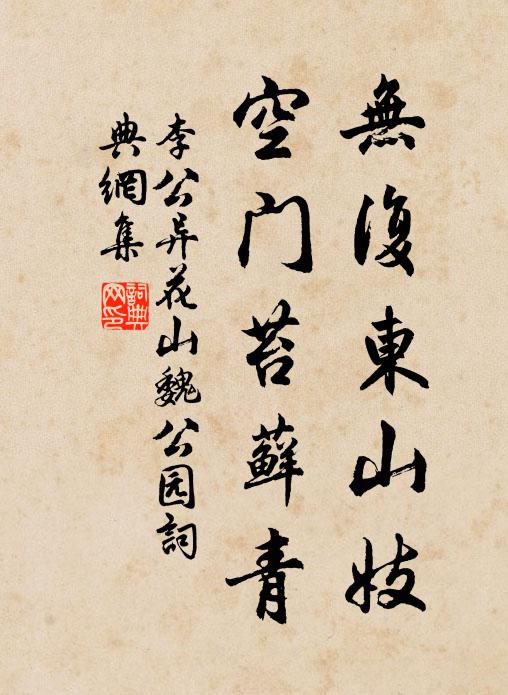 無復東山妓
空門苔蘚青
李公异花山魏公园詞
典網集
詞典
网印